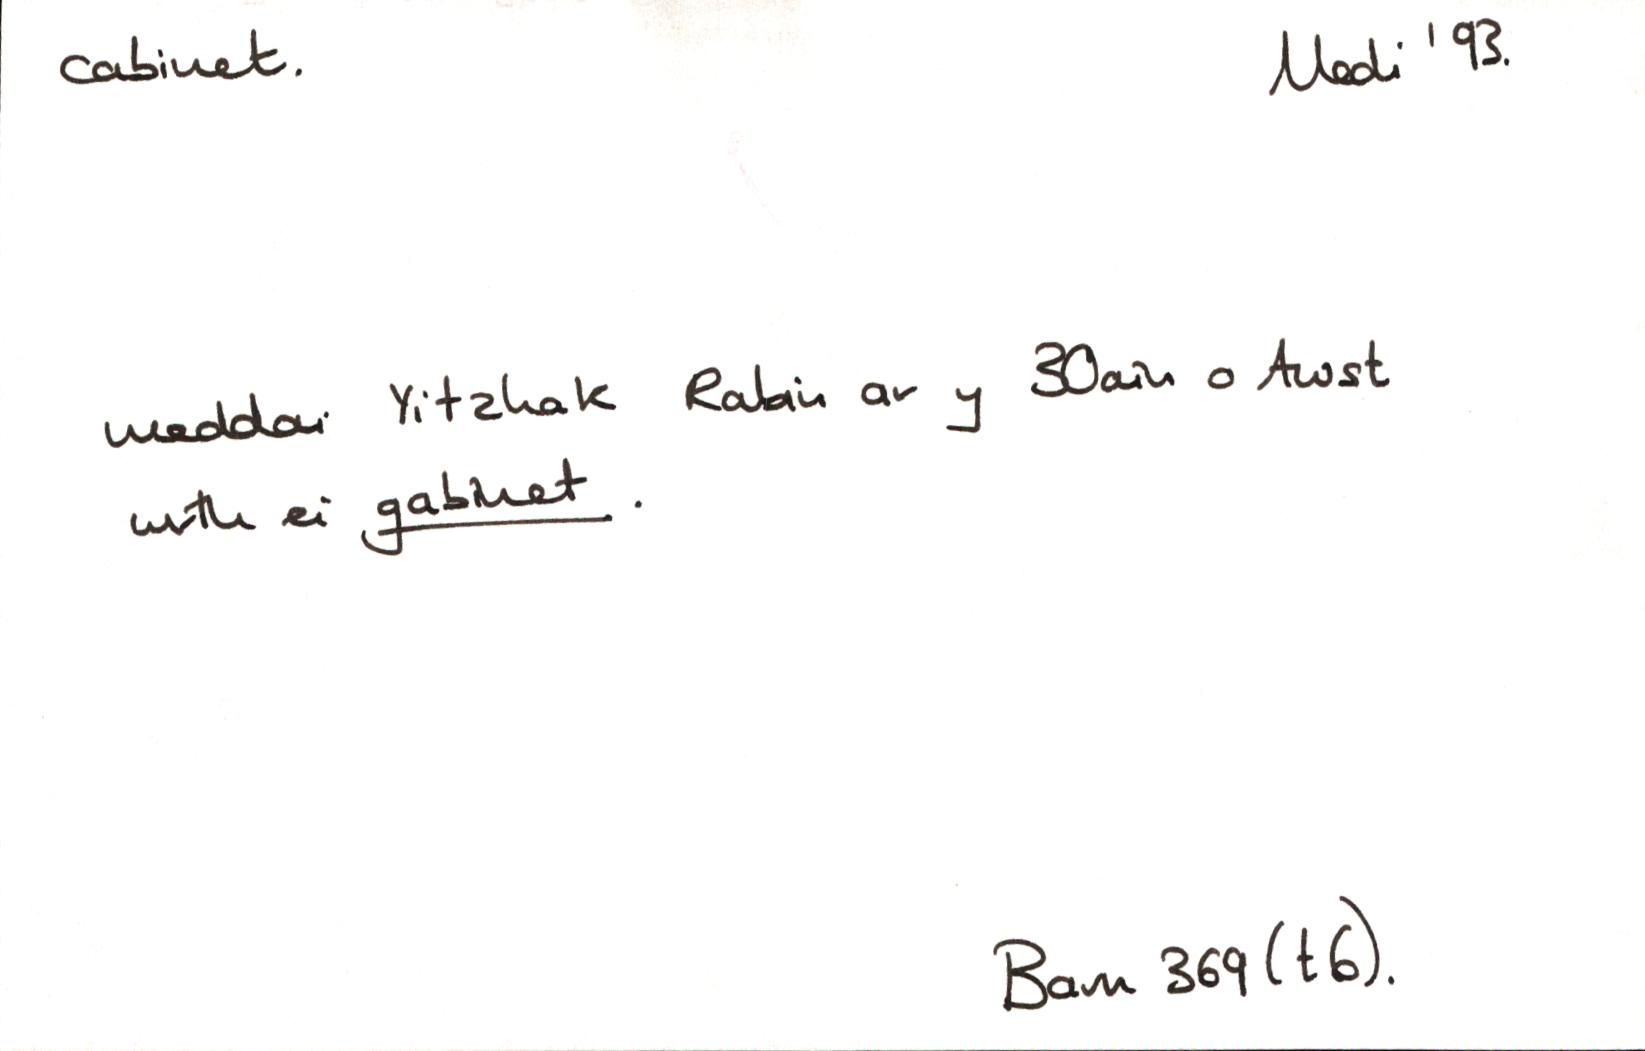 cabinet.
Medi '93.
meddai Yitzhak Rabin ar y 30ain o Awst
wrth ei gabinet.
Barn 369 (t6).